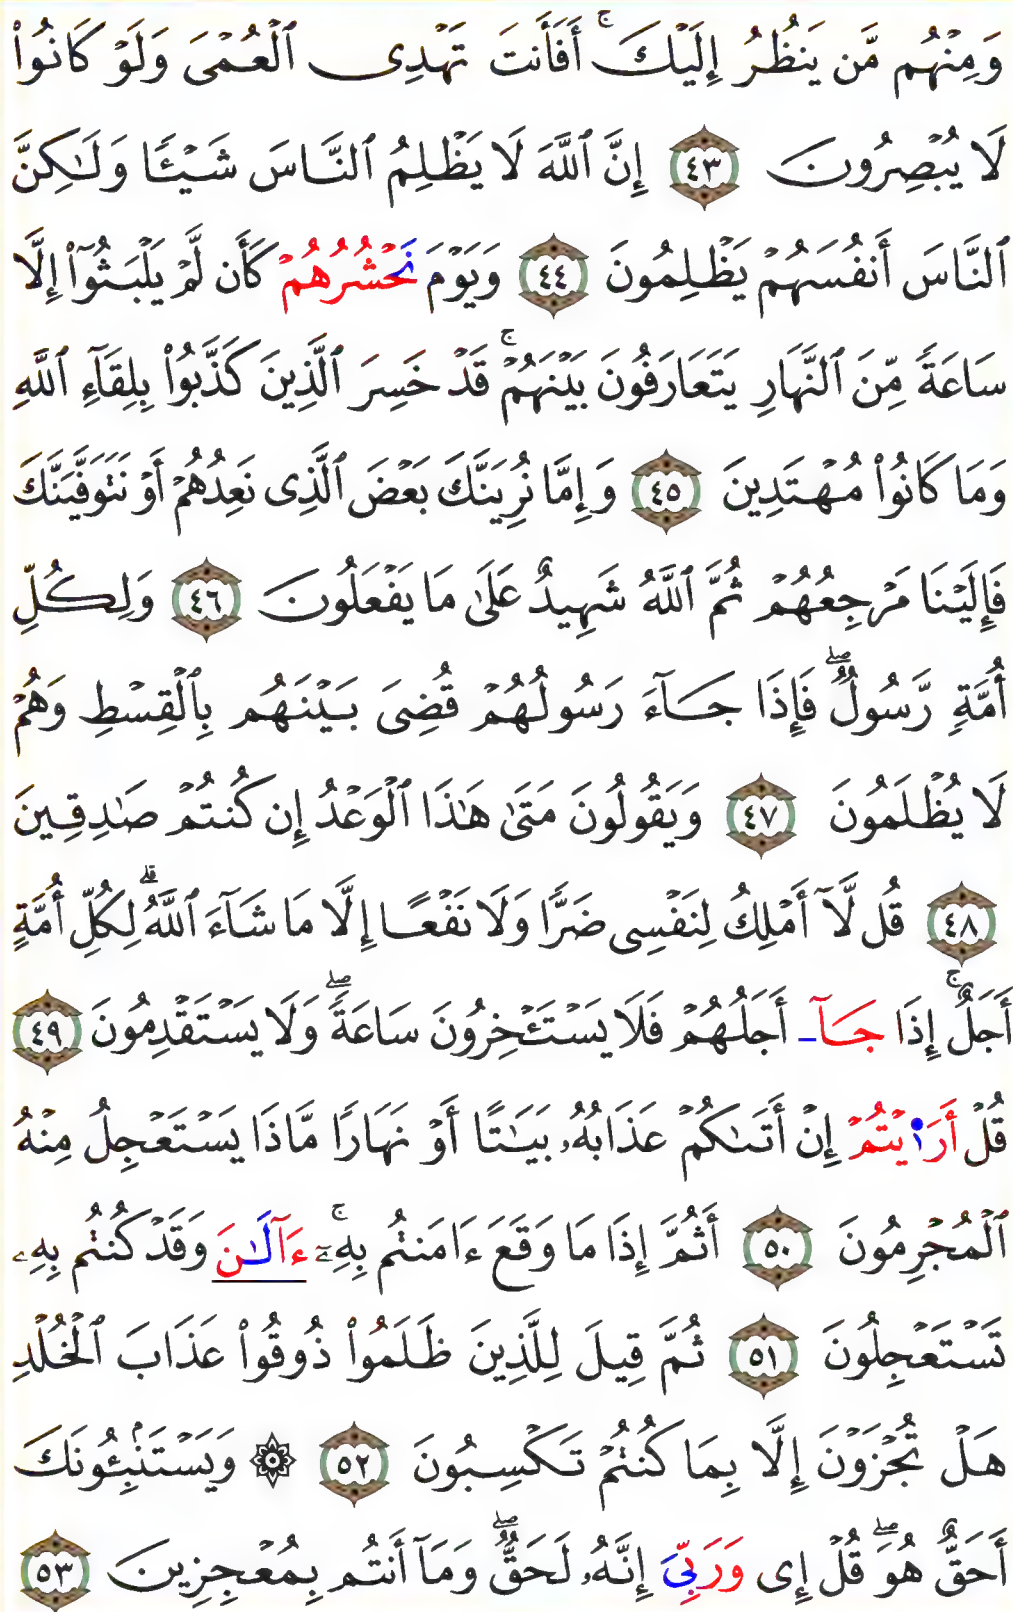 وَمِنْهُم مَّن يَنظُرُ إِلَيْكَ ۚ أَفَأَنتَ تَهْدِى ٱلْعُمْىَ وَلَوْ كَانُوا۟
لَا يُبْصِرُونَ ٤٣ إِنَّ ٱللَّهَ لَا يَظْلِمُ ٱلنَّاسَ شَيْـًٔا وَلَـٰكِنَّ
ٱلنَّاسَ أَنفُسَهُمْ يَظْلِمُونَ ٤٤ وَيَوْمَ نَحْشُرُهُمْ كَأَن لَّمْ يَلْبَثُوٓا۟ إِلَّا
سَاعَةً مِّنَ ٱلنَّهَارِ يَتَعَارَفُونَ بَيْنَهُمْ ۚ قَدْ خَسِرَ ٱلَّذِينَ كَذَّبُوا۟ بِلِقَآءِ ٱللَّهِ
وَمَا كَانُوا۟ مُهْتَدِينَ ٤٥ وَإِمَّا نُرِيَنَّكَ بَعْضَ ٱلَّذِى نَعِدُهُمْ أَوْ نَتَوَفَّيَنَّكَ
فَإِلَيْنَا مَرْجِعُهُمْ ثُمَّ ٱللَّهُ شَهِيدٌ عَلَىٰ مَا يَفْعَلُونَ ٤٦ وَلِكُلِّ
أُمَّةٍ رَّسُولٌ ۖ فَإِذَا جَآءَ رَسُولُهُمْ قُضِىَ بَيْنَهُم بِٱلْقِسْطِ وَهُمْ
لَا يُظْلَمُونَ ٤٧ وَيَقُولُونَ مَتَىٰ هَـٰذَا ٱلْوَعْدُ إِن كُنتُمْ صَـٰدِقِينَ
٤٨ قُل لَّآ أَمْلِكُ لِنَفْسِى ضَرًّا وَلَا نَفْعًا إِلَّا مَا شَآءَ ٱللَّهُ ۗ لِكُلِّ أُمَّةٍ
أَجَلٌ ۚ إِذَا جَآ أَجَلُهُمْ فَلَا يَسْتَـْٔخِرُونَ سَاعَةً ۖ وَلَا يَسْتَقْدِمُونَ ٤٩
قُلْ أَرَا۬يْتُمْ إِنْ أَتَىٰكُمْ عَذَابُهُۥ بَيَـٰتًا أَوْ نَهَارًا مَّاذَا يَسْتَعْجِلُ مِنْهُ
ٱلْمُجْرِمُونَ ٥٠ أَثُمَّ إِذَا مَا وَقَعَ ءَامَنتُم بِهِۦٓ ۚ ءَآلَـٰنَ وَقَدْ كُنتُم بِهِۦ
تَسْتَعْجِلُونَ ٥١ ثُمَّ قِيلَ لِلَّذِينَ ظَلَمُوا۟ ذُوقُوا۟ عَذَابَ ٱلْخُلْدِ
هَلْ تُجْزَوْنَ إِلَّا بِمَا كُنتُمْ تَكْسِبُونَ ٥٢ ۞ وَيَسْتَنۢبِـُٔونَكَ
أَحَقٌّ هُوَ ۖ قُلْ إِى وَرَبِّىَ إِنَّهُۥ لَحَقٌّ ۖ وَمَآ أَنتُم بِمُعْجِزِينَ ٥٣